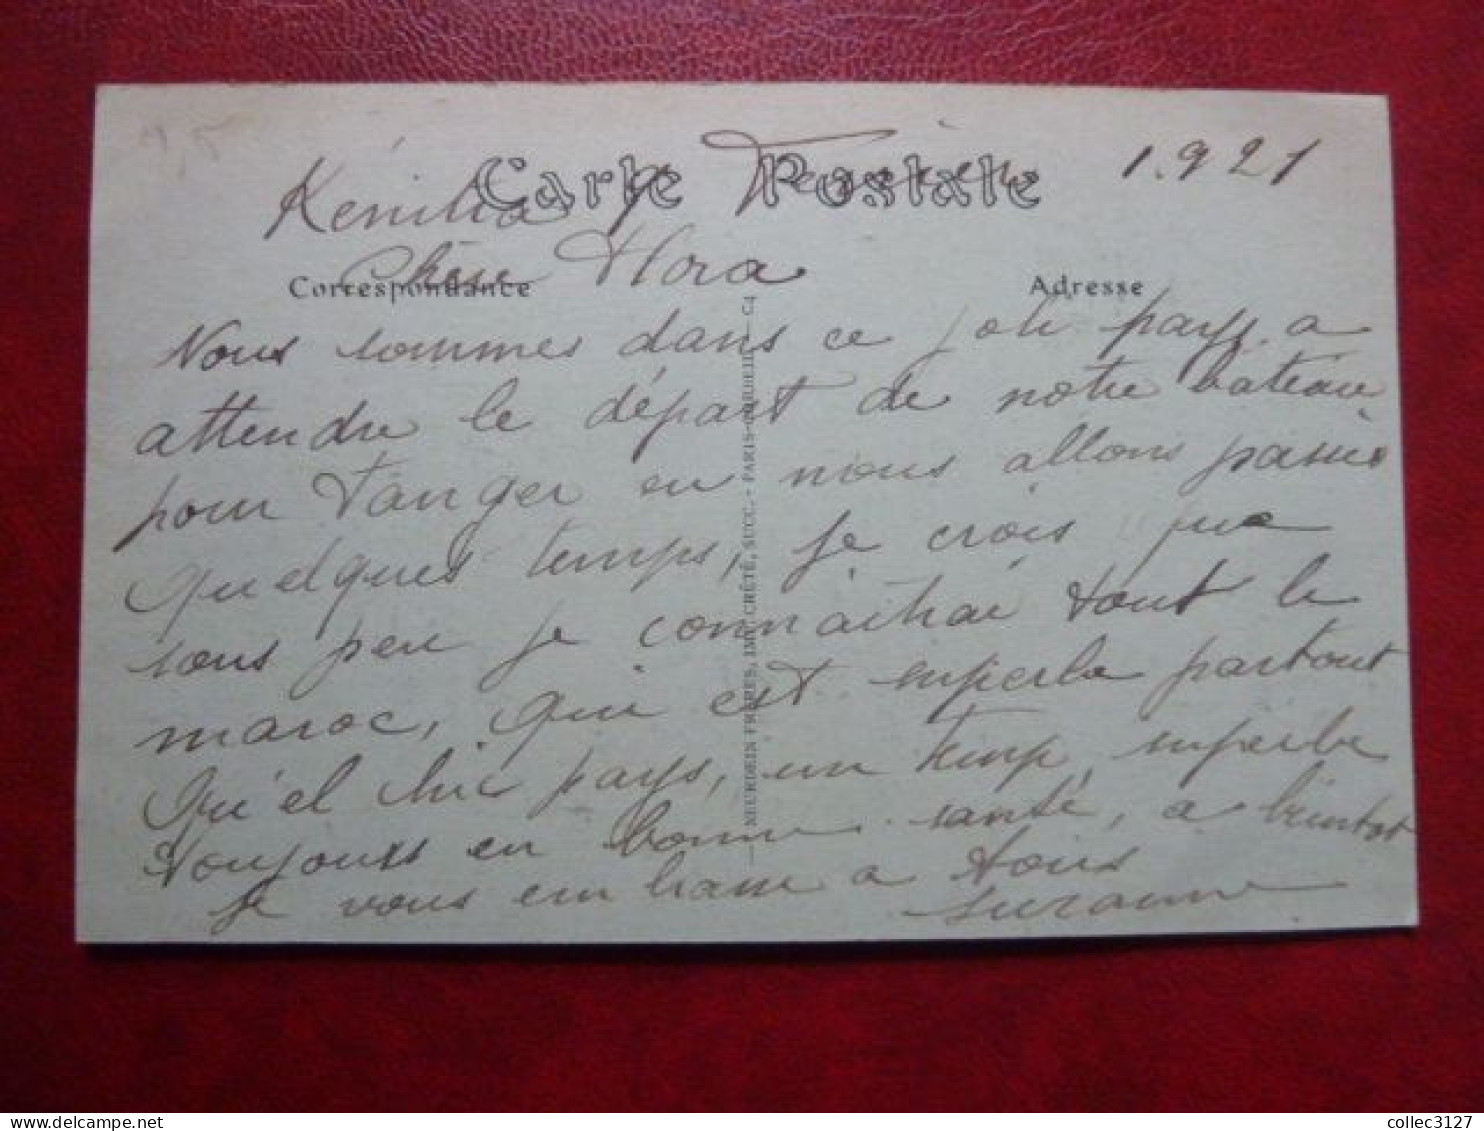 4,5
Carte Postale
Kénitra 9 Fevrier 1.921
Correspondance
Adresse
Chère Flora
Nous sommes dans ce joli pays a
attendre le départ de notre bateau
pour Tanger ou nous allons passer
quelques temps, je crois que
sous peu je connaitrai tout le
maroc, qui est superbe partout
Qu'el chic pays, un temp superbe
toujours en bonne santé, a bientot
je vous embrasse a tous
Suzanne
NEURDEIN FRÈRES, IMP. CRÉTÉ, SUCC. - PARIS-CORBEIL - CJ
collec3127